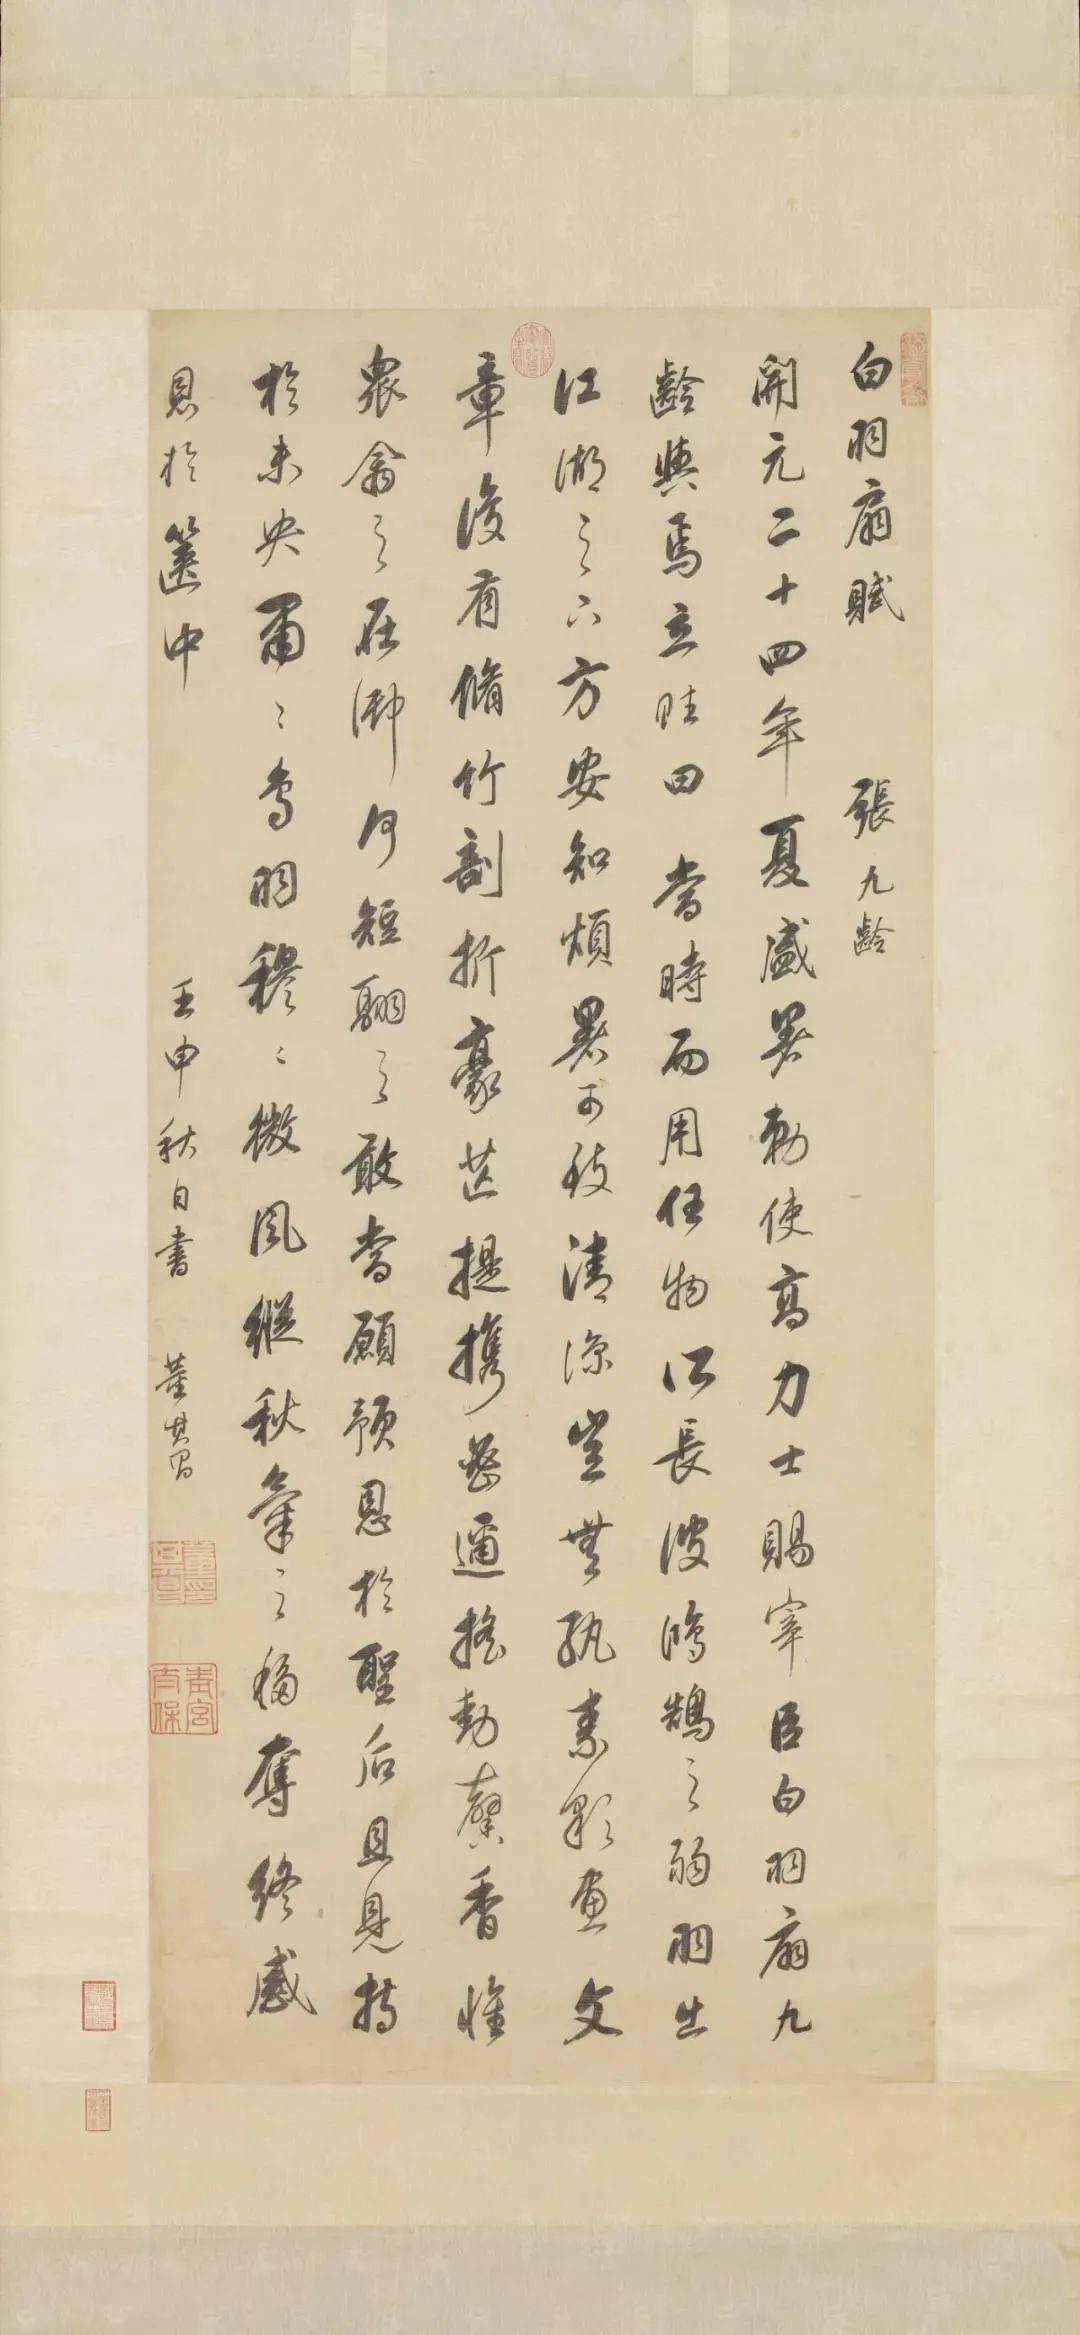 白羽扇賦 張九齡
開元二十四年夏盛暑勅使高力士賜宰臣白羽扇九
齡與焉立賦曰當時而用任物所長彼鴻鵠之弱羽出
江湖之下方安知煩暑可致清涼豈無紈素彩畫文
章復有脩竹剖析豪芒提攜密邇搖動馨香惟
衆禽之在御何短翮之敢當顧預恩於聖后且見持
於未央肅〻鳥羽穆〻微風縱秋氣之移奪終感
恩於篋中 壬申秋日書 董其昌
青宮太保